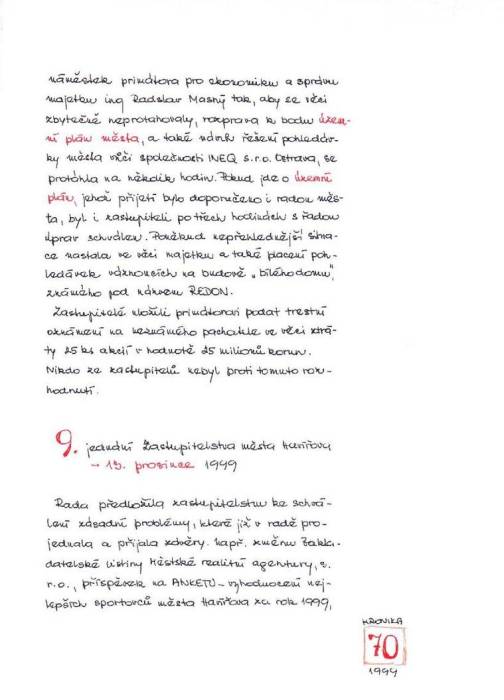 náměstek primátora pro ekonomiku a správu
majetku ing Radslav Masný tak, aby se věci
zbytečně neprotahovaly, rozprava k bodu územ-
ní plán města, a také návrh řešení pohledáv-
ky města vůči společnosti INEQ s.r.o. Ostrava, se
protáhla na několik hodin. Pokud jde o územní
plán, jehož přijetí bylo doporučeno i radou měs-
ta, byl i zastupiteli po třech hodinách s řadou
úprav schválen. Poněkud nepřehlednější situa-
ce nastala ve věci majetku a také placení poh-
ledávek váznoucích na budově „bílého domu",
známého pod názvem REDON.
Zastupitelé uložili primátorovi podat trestní
oznámení na neznámého pachatele ve věci ztrá-
ty 25 ks akcií v hodnotě 25 milionů korun.
Nikdo ze zastupitelů nebyl proti tomuto roz-
hodnutí.
9. jednání Zastupitelstva města Havířova
- 13. prosince 1999
Rada předložila zastupitelstvu ke schvá-
lení zásadní problémy, které již v radě pro-
jednala a přijala závěry. Např. změnu Zakla-
datelské listiny Městské realitní agentury, s.
r.o., příspěvek na ANKETU - vyhodnocení nej-
lepších sportovců města Havířova za rok 1999,
KRONIKA
70
1999